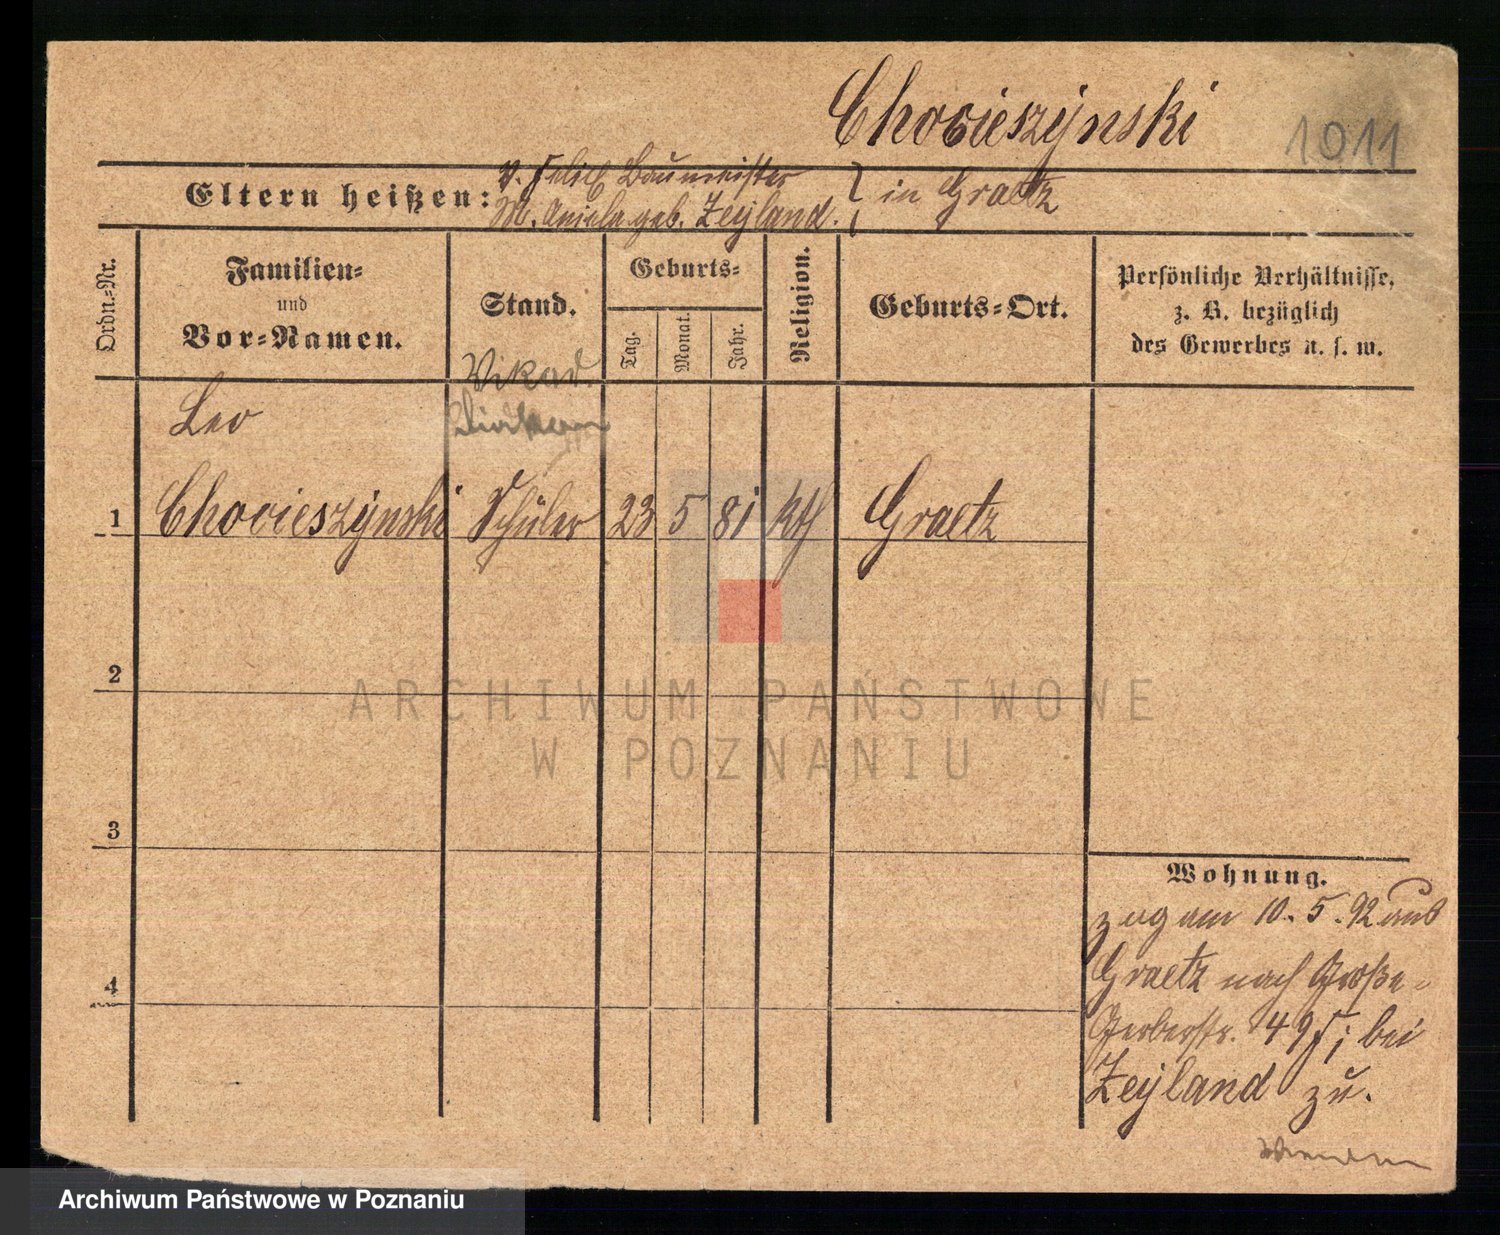 Chocieszynski
1011
Eltern heißen:
V. Felix Baumeister
M. Aniela geb. Zeyland.
} in Graetz
Ordn.-Nr.
Familien-
und
Vor-Namen.
Stand.
Geburts-
Tag.
Monat.
Jahr.
Religion.
Geburts-Ort.
Persönliche Verhältnisse,
z. B. bezüglich
des Gewerbes u. s. w.
Vikar
Leo
1 Chocieszynski Schüler 23 5 81 kth Graetz
2
3
4
Wohnung.
zog am 10. 5. 92 aus
Graetz nach Große-
Gerberstr. 49 I; bei
Zeyland zu.
Wenden
ARCHIWUM PAŃSTWOWE
W POZNANIU
Archiwum Państwowe w Poznaniu